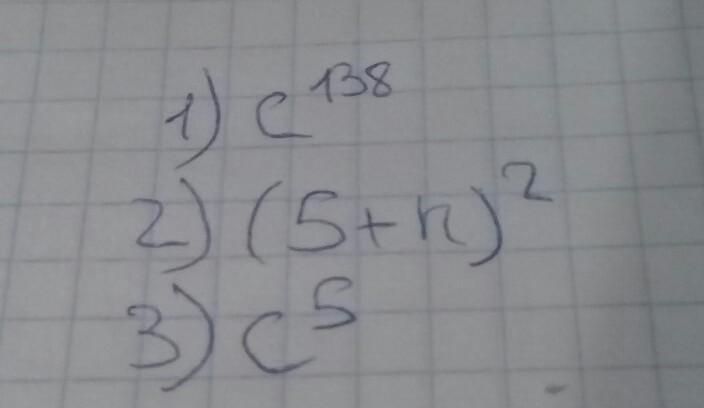 1) c¹³⁸
2) (5+n)²
3) c⁵